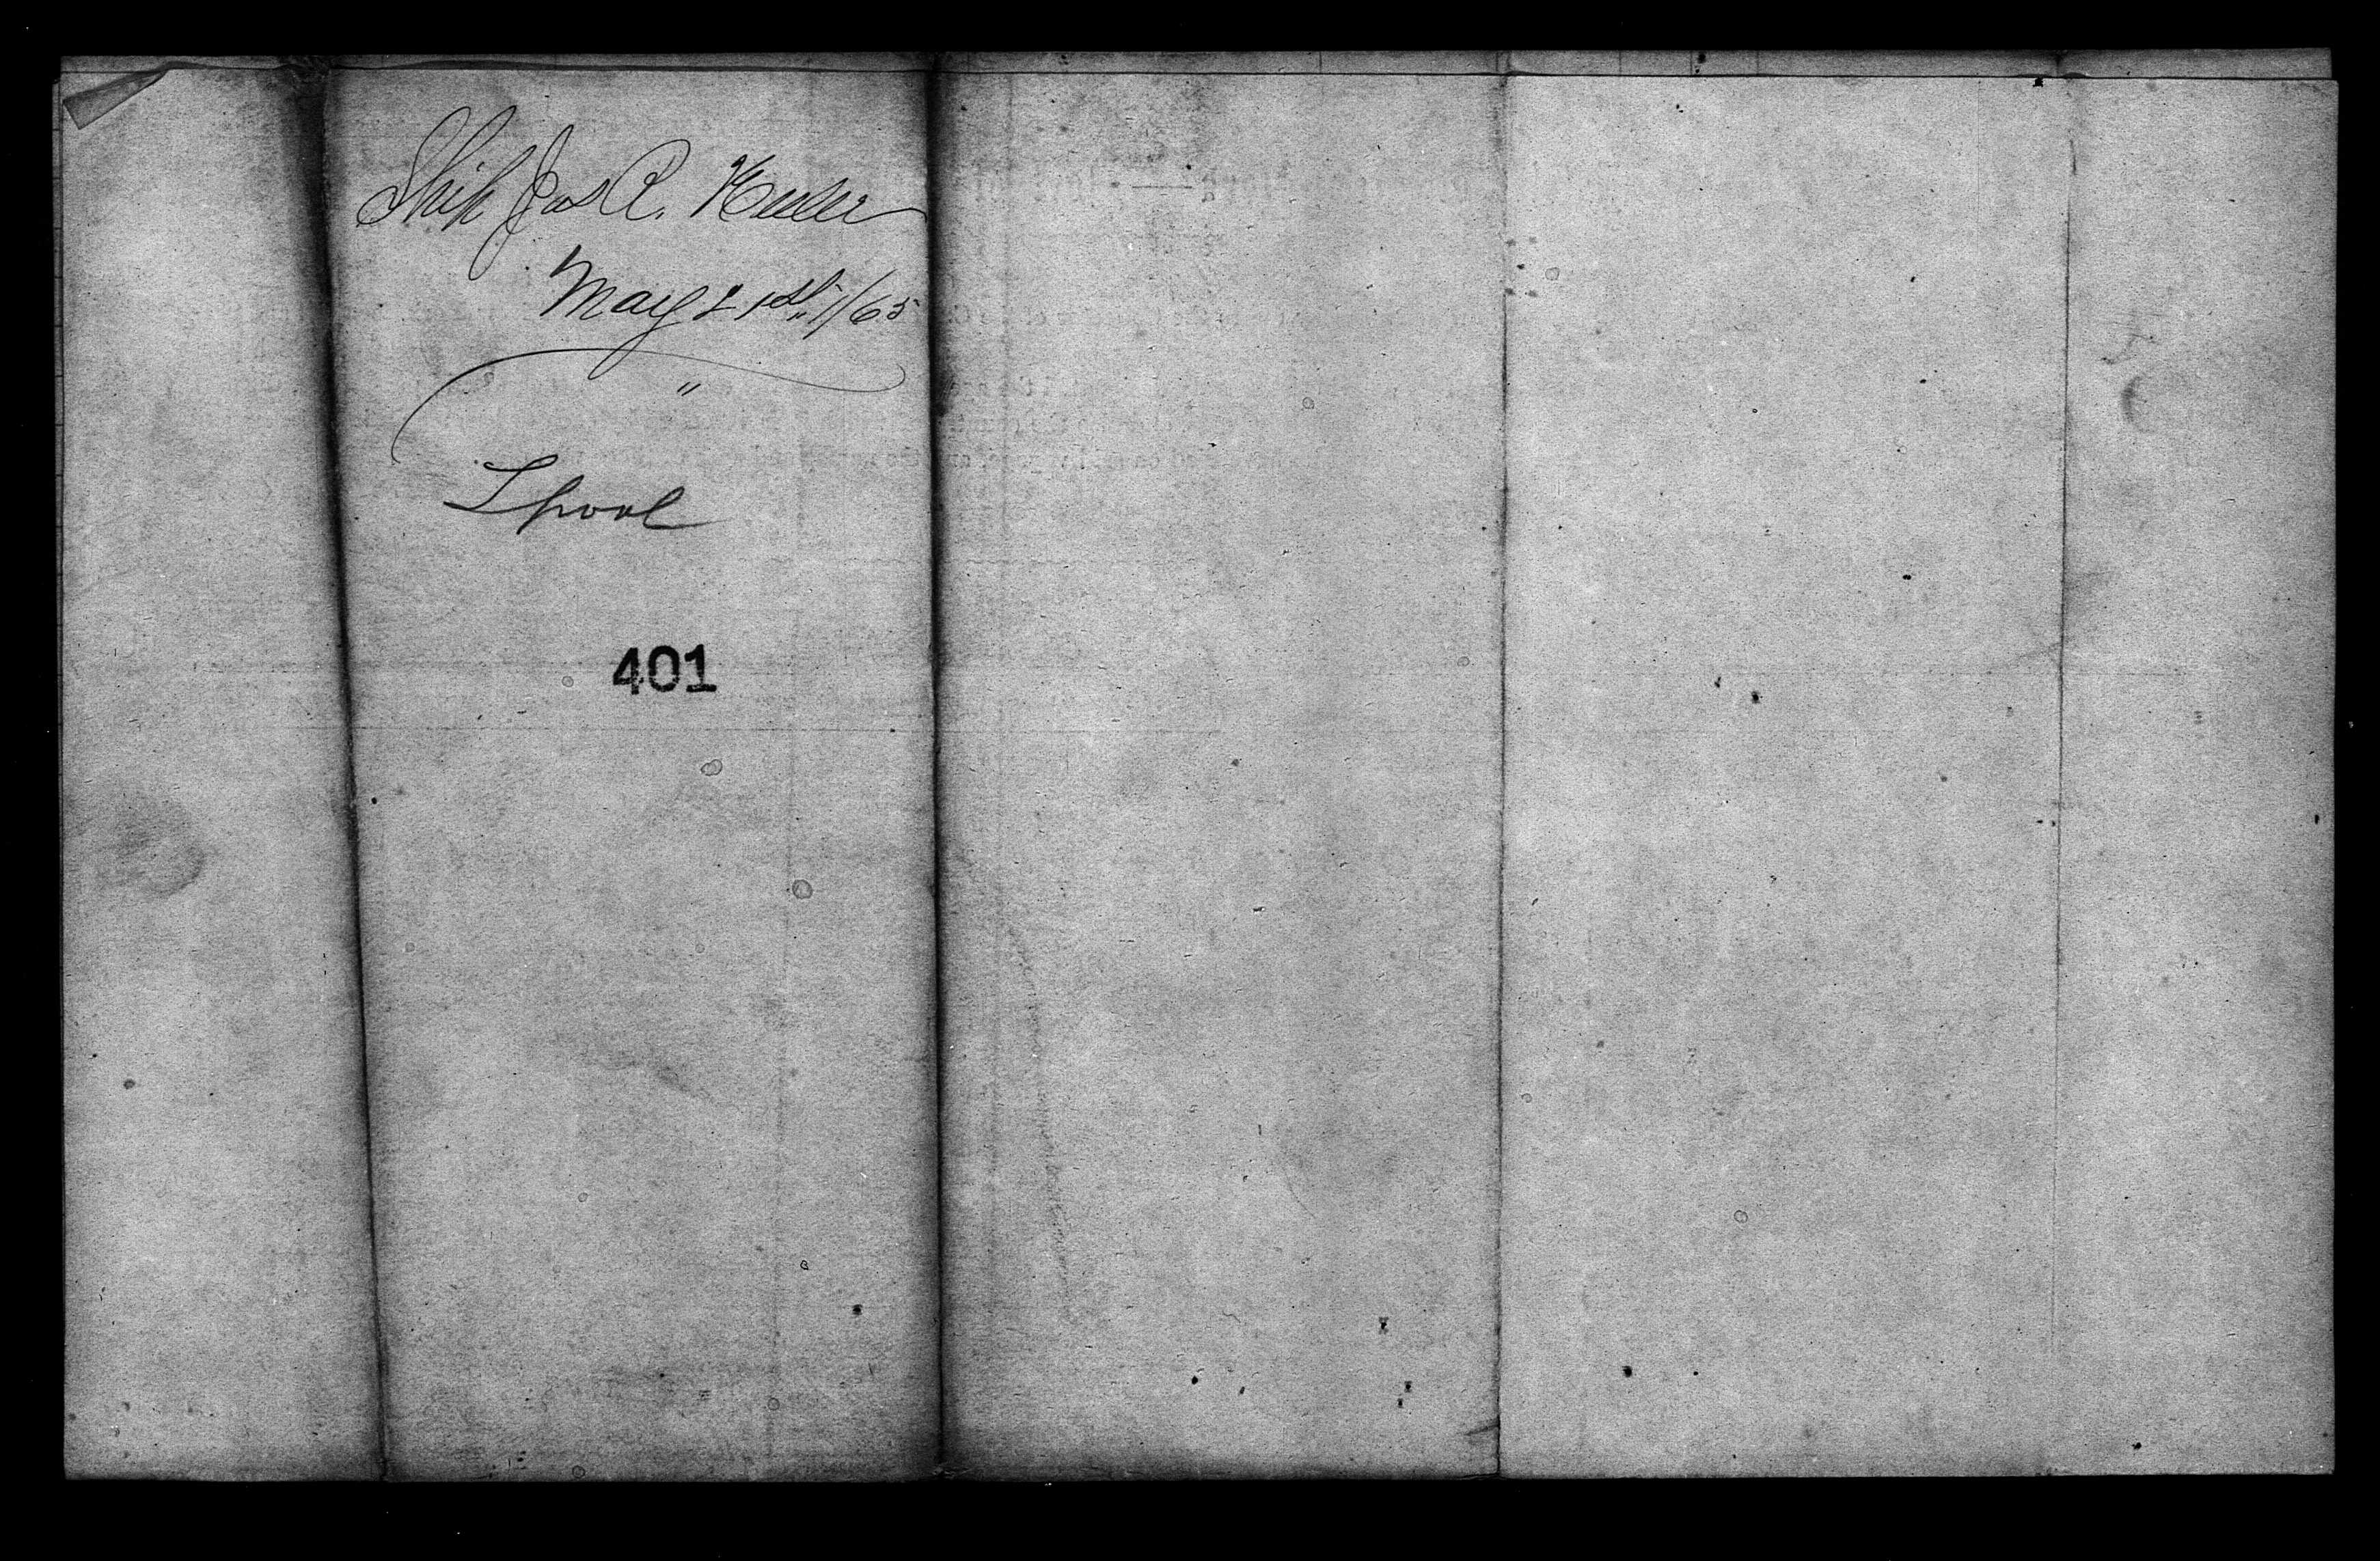 Ship Jas R. Keeler
May 21st, /65
"
Lpool
401